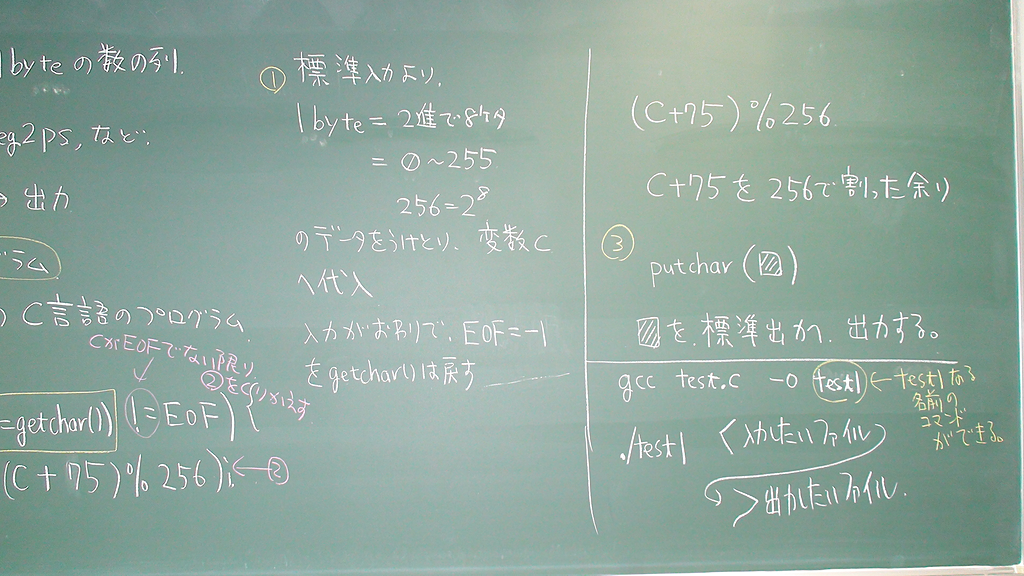 1byteの数の列.
eg2ps, など.
→ 出力
ラム
) C言語のプログラム
CがEOFでない限り
②をくりかえす
=getchar()) != EOF) {
(C + 75) % 256); ← ②
① 標準入力より,
1byte = 2進で8ケタ
= 0~255
256=2⁸
のデータをうけとり, 変数C
へ代入
入力がおわりで, EOF=-1
をgetchar()は戻す
(C+75) % 256
C+75を 256で割った余り
③
putchar (▨)
▨を 標準出力へ 出力する。
gcc test.c -o test1 ← test1なる
名前の
コマンド
ができる。
./test1 <入力したいファイル)
>出力したいファイル.